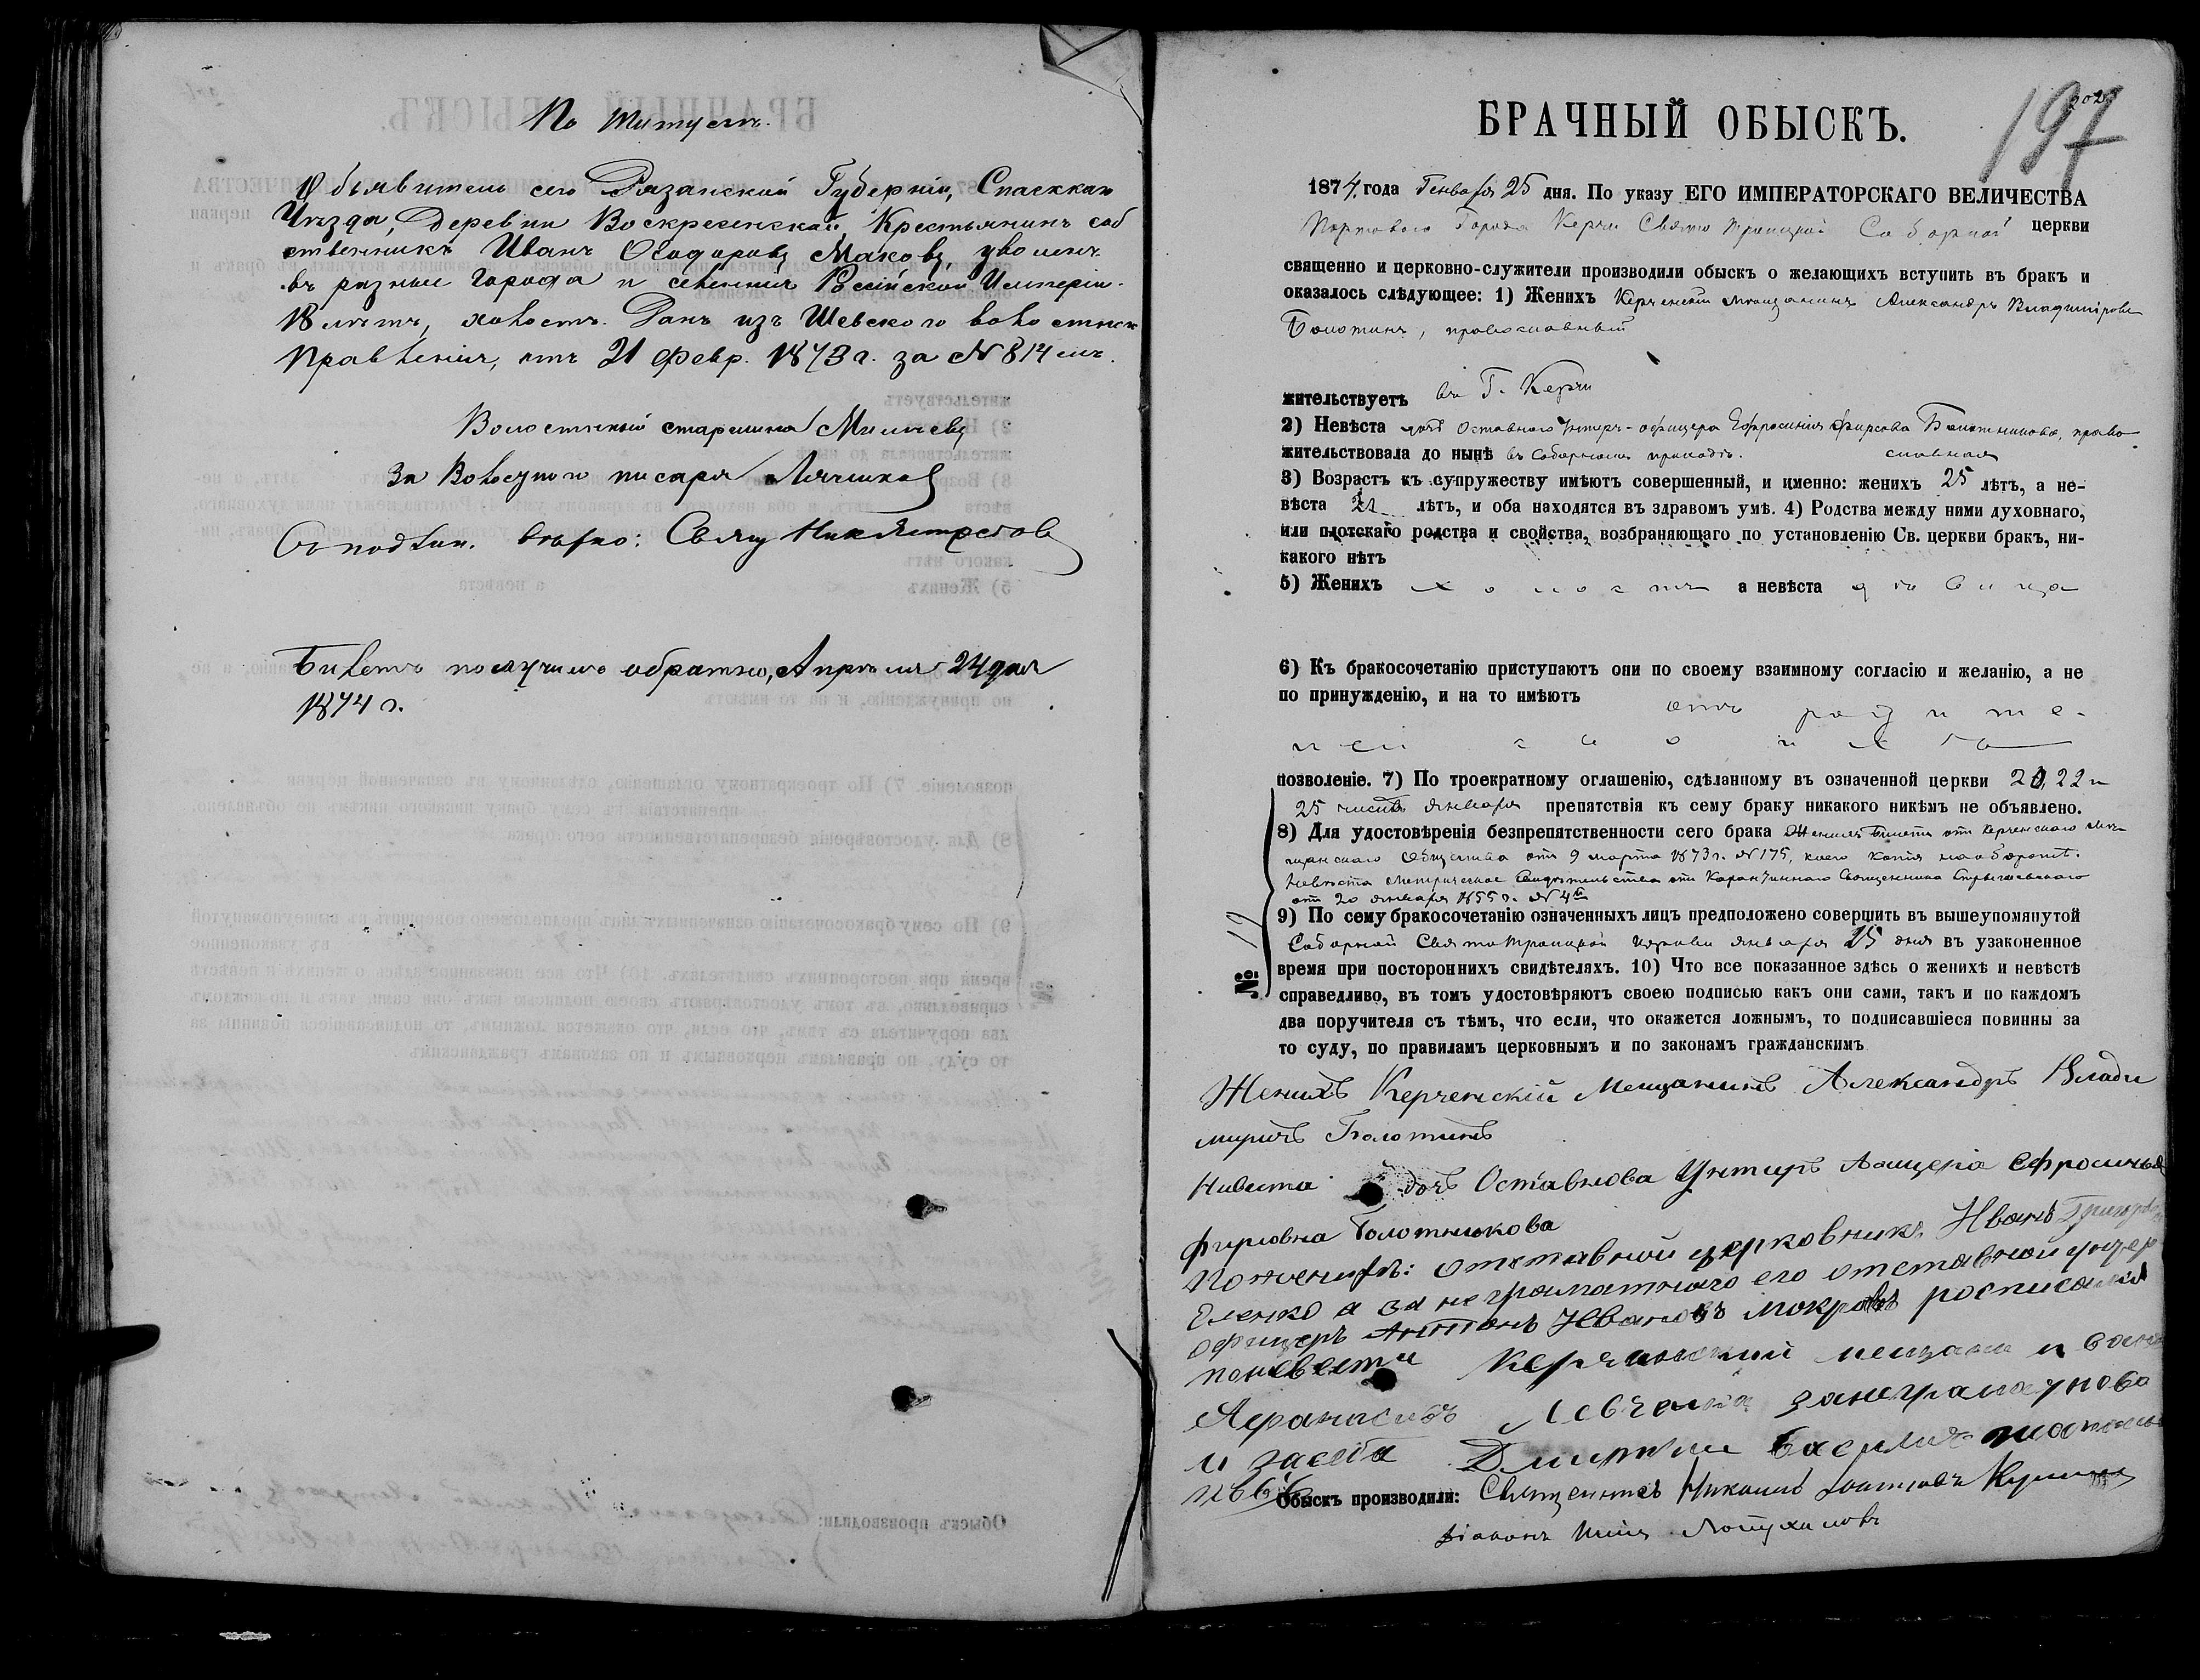 По титулѣ.
Объявитель сего Рязанской Губерніи, Спасскаго
Уѣзда, Деревни Воскресенской, Крестьянинъ соб
ственникъ Иванъ Ѳеодоровъ Маковъ, уволенъ
въ разные города и селенія Россійской Имперіи.
18 лѣтъ, холостъ. Данъ изъ Шевского волостнаго
Правленія, отъ 21 февр. 1873 г. за № 814 мъ.
Волостный старшина
За Волостного писаря
Съ подлин. вѣрно: Свящ
Билетъ получилъ обратно, Апрѣля 24 дня
1874 г.
БРАЧНЫЙ ОБЫСКЪ.
197
1874 года Генваря 25 дня. По указу ЕГО ИМПЕРАТОРСКАГО ВЕЛИЧЕСТВА
Портоваго Города Керчи Свято Троицкой Соборной церкви
священно и церковно-служители производили обыскъ о желающихъ вступить въ бракъ и
оказалось слѣдующее: 1) Женихъ Керченскій мѣщанинъ Александръ Владиміровъ
Болотинъ, православный
жительствуетъ въ Г. Керчи
2) Невѣста дочь Оставнаго Унтеръ-офицера Ефросинія Фирсова Болотникова, право
жительствовала до нынѣ въ Соборномъ приходѣ. славная
3) Возрастъ къ супружеству имѣютъ совершенный, и именно: женихъ 25 лѣтъ, а не-
вѣста лѣтъ, и оба находятся въ здравомъ умѣ. 4) Родства между ними духовнаго,
или плотскаго родства и свойства, возбраняющаго по установленію Св. церкви бракъ, ни-
какого нѣтъ
5) Женихъ холостъ а невѣста дѣвица
6) Къ бракосочетанію приступаютъ они по своему взаимному согласію и желанію, а не
по принужденію, и на то имѣютъ отъ родите-
лей своихъ
позволеніе. 7) По троекратному оглашенію, сдѣланному въ означенной церкви 20, 22 и
25 числъ Января препятствія къ сему браку никакого никѣмъ не объявлено.
8) Для удостовѣренія безпрепятственности сего брака Жениха Билетъ отъ Керченскаго мѣ-
щанскаго Общества отъ 9 марта 1873 г. № 175, коего копія на оборотѣ.
Невѣста Метрическое Свидѣтельство отъ Карантиннаго Священника
отъ 20 января 1855 г. № 4
9) По сему бракосочетанію означенныхъ лицъ предположено совершить въ вышеупомянутой
Соборной СвятоТроицкой церкви января 25 дня въ узаконенное
№ 12
время при постороннихъ свидѣтеляхъ. 10) Что все показанное здѣсь о женихѣ и невѣстѣ
справедливо, въ томъ удостовѣряютъ своею подписью какъ они сами, такъ и по каждомъ
два поручителя съ тѣмъ, что если, что окажется ложнымъ, то подписавшіеся повинны за
то суду, по правиламъ церковнымъ и по законамъ гражданскимъ
Женихъ Керченскій Мещанинъ Александръ Влади
миричъ Болотинъ
Нивиста дочъ Оставнова Унтиръ Ефросинья
Фирсовна Болотникова
По женихѣ: отставной церковникъ Иванъ
а за неграматнаго его отставной унтер
офицеръ Антонъ Ивановъ Мокровъ росписался
поневести Керченский мещани и ванъ
Афанасивъ Левченка занеграматнова
и засебя Дмитрий Василия
Обыскъ производили: Священникъ
Діаконъ